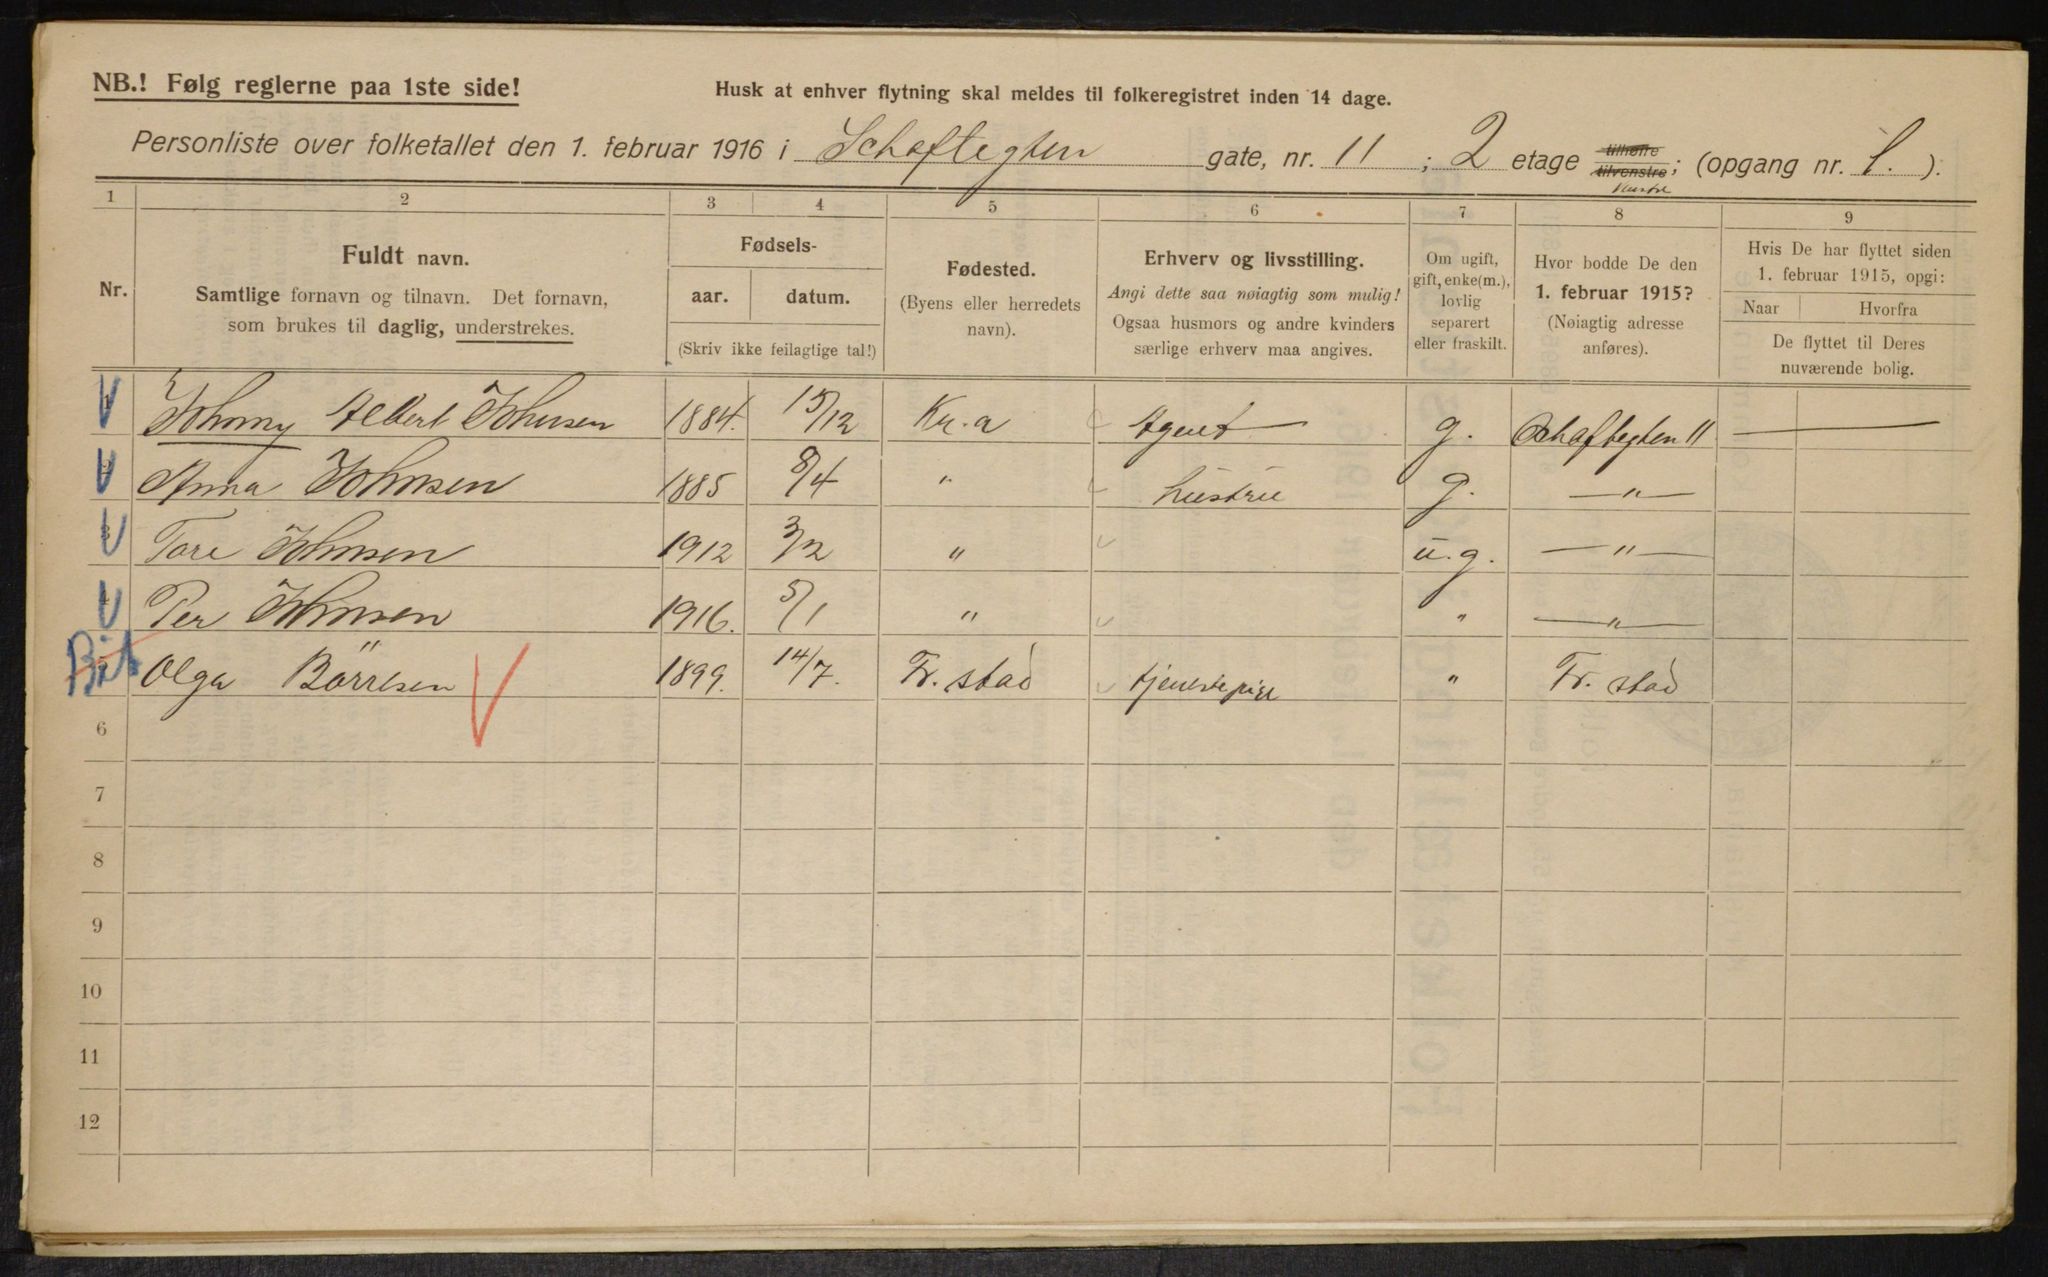 NB.! Følg reglerne paa 1ste side!
Husk at enhver flytning skal meldes til folkeregistret inden 14 dage.
Personliste over folketallet den 1. februar 1916 i Schaftegten gate, nr. 11 ; 2 etage tilhøire tilvenstre ; (opgang nr. 1. ).
1 2 3 4 5 6 7 8 9
Nr.
Fuldt navn.
Samtlige fornavn og tilnavn. Det fornavn,
som brukes til daglig, understrekes.
Fødsels-
aar. datum.
(Skriv ikke feilagtige tal!)
Fødested.
(Byens eller herredets
navn).
Erhverv og livsstilling.
Angi dette saa nøiagtig som mulig!
Ogsaa husmors og andre kvinders
særlige erhverv maa angives.
Om ugift,
gift, enke(m.),
lovlig
separert
eller fraskilt.
Hvor bodde De den
1. februar 1915?
(Nøiagtig adresse
anføres).
Hvis De har flyttet siden
1. februar 1915, opgi:
Naar Hvorfra
De flyttet til Deres
nuværende bolig.
Johnny Albert Johnsen 1884. 15/12 Kr.a Agent g. Schaftegten 11 —
Anna Johnsen 1885 8/4 " hustru g. —"—
Tore Johnsen 1912 3/2 " u.g. —"—
Per Johnsen 1916. 5/1 " " —"—
Olga Börresen 1899. 14/7. Fr. stad tjenestepige " Fr. stad
6
7
8
9
10
11
12